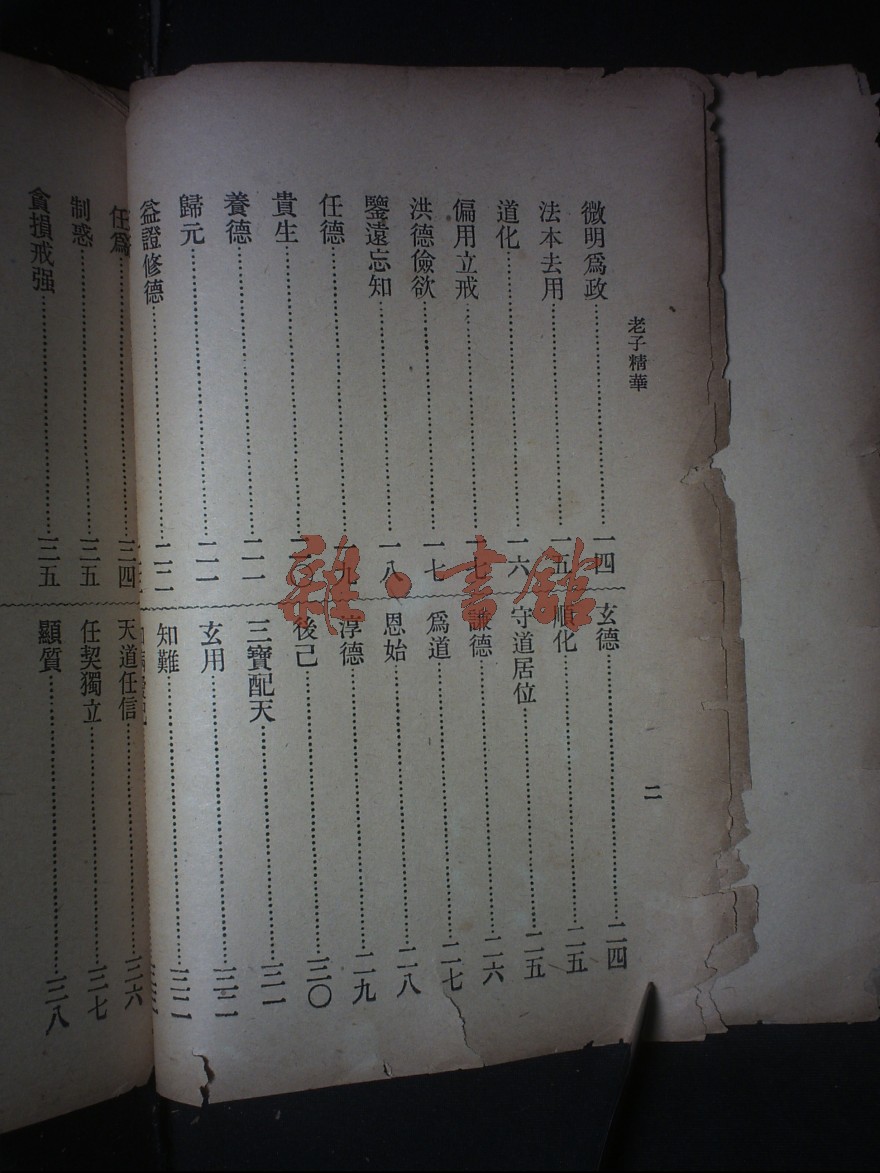 老子精華
二
微明爲政……一四
法本去用……一五
道化……一六
偏用立戒……一七
洪德儉欲……一七
鑒遠忘知……一八
任德……一九
貴生……二〇
養德……二一
歸元……二一
益證修德……二二
玄德……二四
順化……二五
守道居位……二五
謙德……二六
爲道……二七
恩始……二八
淳德……二九
後己……三〇
三寶配天……三一
玄用……三二
知難……三二
任爲……三四
制惑……三五
貪損戒强……三五
天道任信……三六
任契獨立……三七
顯質……三八
雜·書館